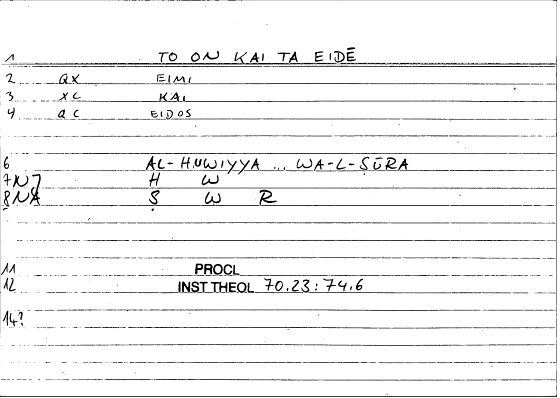 1 TO ON KAI TA EIDĒ
2 QX EIMI
3 XC KAI
4 QC EIDOS
6 AL-HUWIYYA ... WA-L-ṢŪRA
7 N7 H W
8 NA Ṣ W R
11 PROCL
12 INST THEOL 70.23:74.6
14?